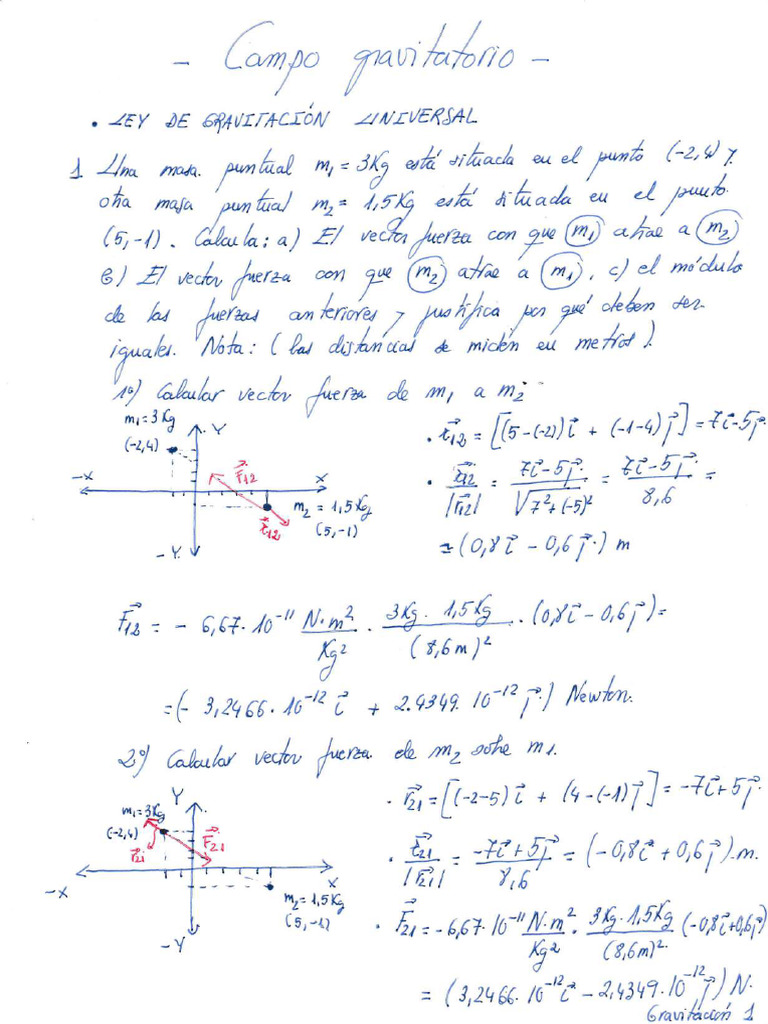 - Campo gravitatorio -
• LEY DE GRAVITACIÓN UNIVERSAL
1 Una masa puntual m₁ = 3Kg está situada en el punto (-2,4) y
otra masa puntual m₂ = 1,5Kg está situada en el punto
(5,-1). Calcula: a) El vector fuerza con que m₁ atrae a m₂
b) El vector fuerza con que m₂ atrae a m₁, c) el módulo
de las fuerzas anteriores y justifica por qué deben ser
iguales. Nota: (las distancias se miden en metros).
1º) Calcular vector fuerza de m₁ a m₂
m₁=3Kg
(-2,4)
Y
-X
X
F⃗12
r⃗12
m₂ = 1,5Kg
(5,-1)
-Y
• r⃗12 = [(5-(-2))i⃗ + (-1-4)j⃗] = 7i⃗-5j⃗
• r⃗12/|r⃗12| = (7i⃗-5j⃗)/√(7²+(-5)²) = (7i⃗-5j⃗)/8,6 =
= (0,8i⃗ - 0,6j⃗) m
F⃗12 = - 6,67·10⁻¹¹ N·m²/Kg² · 3Kg·1,5Kg/(8,6m)² · (0,8i⃗ - 0,6j⃗) =
= (- 3,2466·10⁻¹² i⃗ + 2.4349.10⁻¹² j⃗) Newton.
2º) Calcular vector fuerza de m₂ sobre m₁.
Y
m₁=3Kg
(-2,4)
r⃗21
F⃗21
-X
X
m₂ = 1,5Kg
(5,-1)
-Y
• r⃗21 = [(-2-5)i⃗ + (4-(-1)j⃗] = -7i⃗+5j⃗
• r⃗21/|r⃗21| = (-7i⃗+5j⃗)/8,6 = (-0,8i⃗ + 0,6j⃗).m.
• F⃗21 = -6,67·10⁻¹¹ N·m²/Kg² · 3Kg·1,5Kg/(8,6m)² (-0,8i⃗+0,6j⃗)
= (3,2466·10⁻¹² i⃗ - 2,4349·10⁻¹² j⃗) N.
Gravitación 1